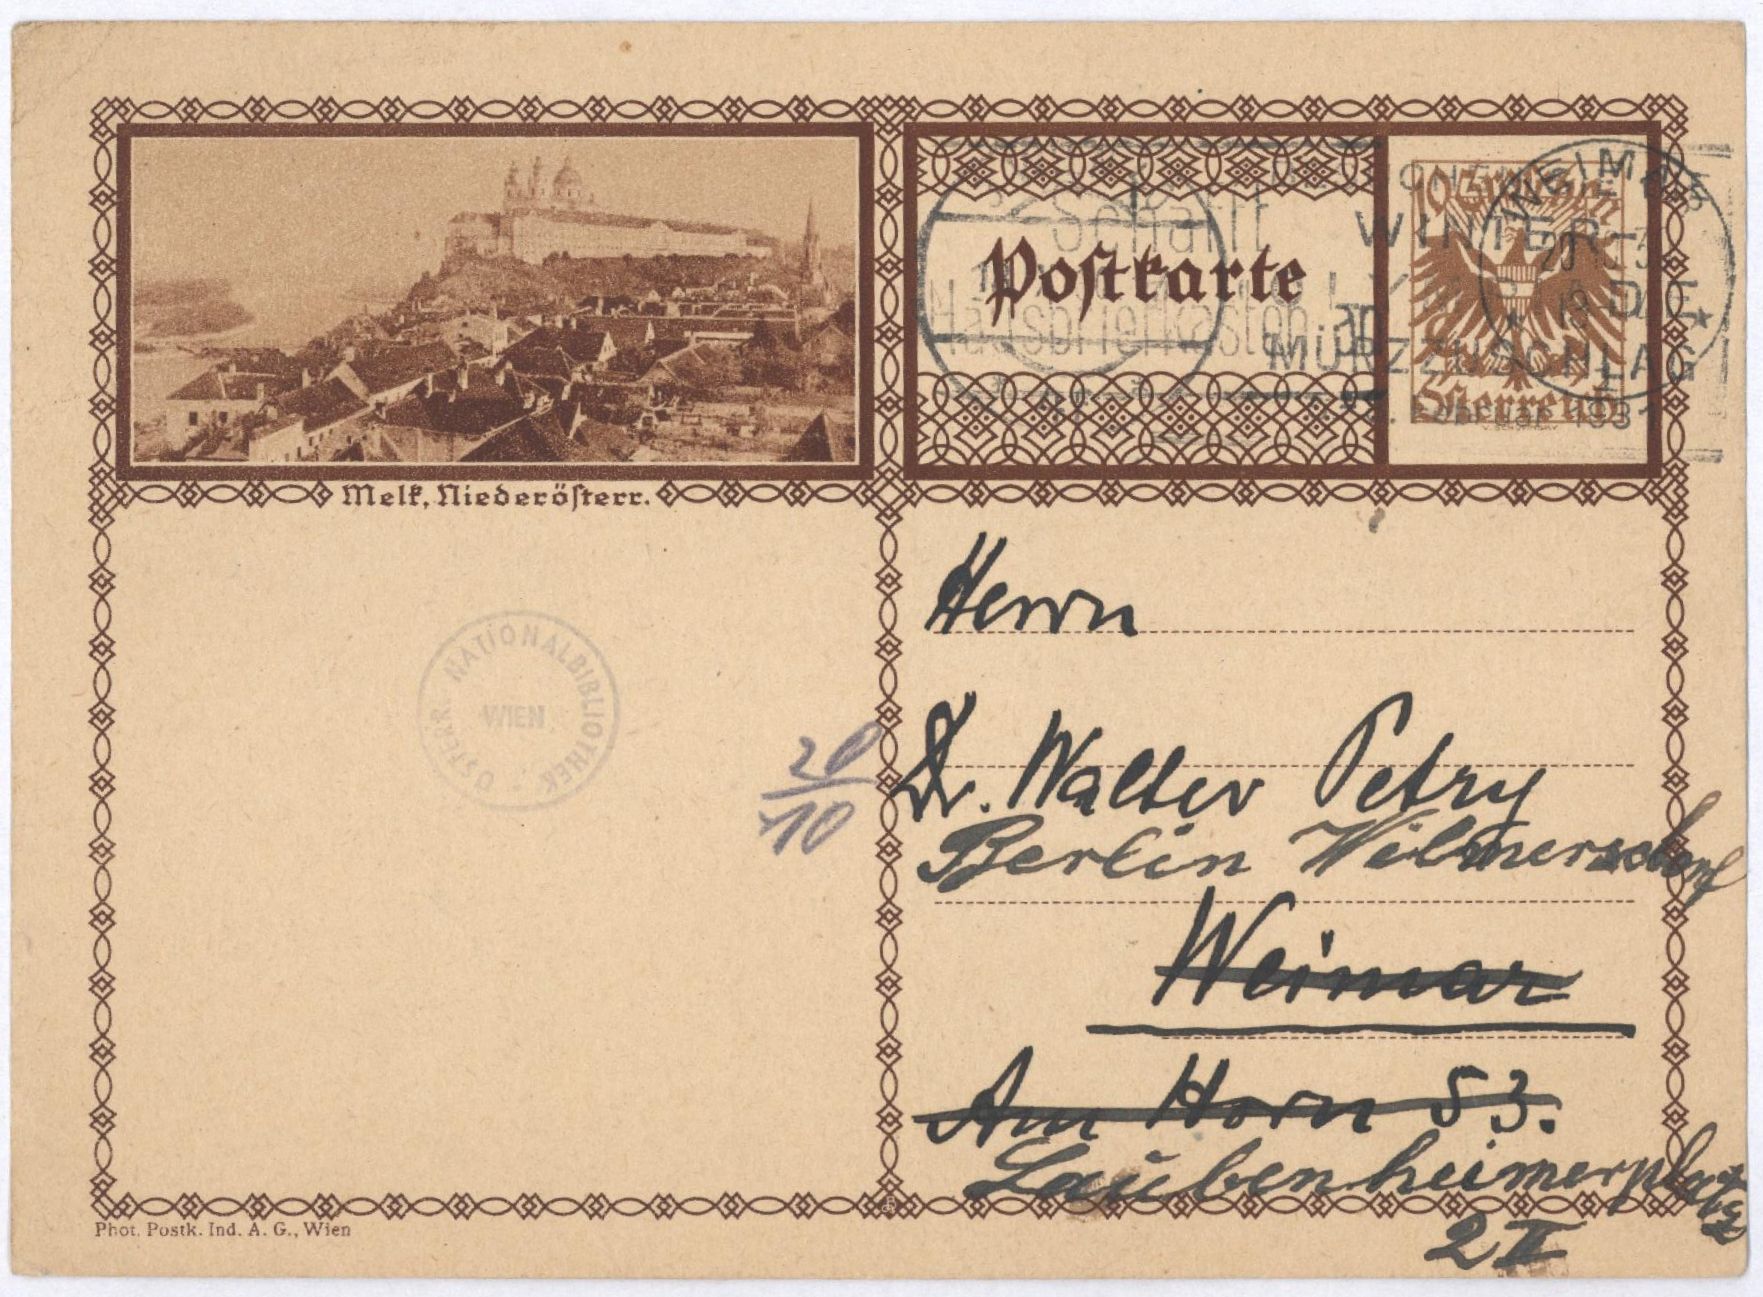 Postkarte
10 Groschen
Österreich
Schafft
Hausbriefkasten an
WINTER-
MÜRZZUSCHLAG
Februar 1931
WEIMAR
Melk, Niederösterr.
ÖSTERR. NATIONALBIBLIOTHEK
WIEN
20
10
Herrn
Dr. Walter Petry
Berlin Wilmersdorf
Weimar
Am Horn 53.
Laubenheimerplatz
2 II
Phot. Postk. Ind. A. G., Wien